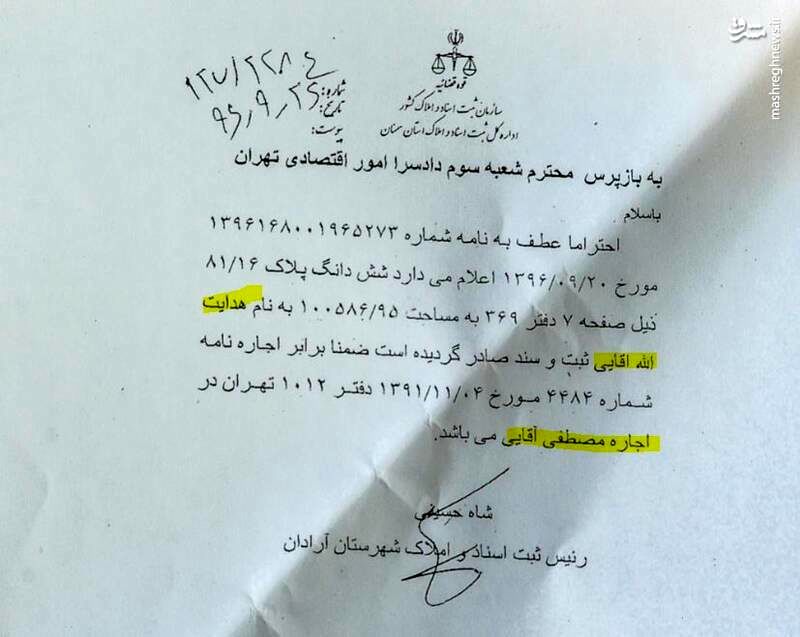 مشرق
mashreghnews.ir
قوه قضائیه
سازمان ثبت اسناد و املاک کشور
اداره کل ثبت اسناد و املاک استان سمنان
شماره:
تاریخ: ۹۶٫۹٫۲۶
پیوست:
به بازپرس محترم شعبه سوم دادسرا امور اقتصادی تهران
باسلام
احتراما عطف به نامه شماره ۱۳۹۶۱۶۸۰۰۱۹۶۵۲۷۳
مورخ ۱۳۹۶/۰۹/۲۰ اعلام می دارد شش دانگ پلاک ۸۱/۱۶
ذیل صفحه ۷ دفتر ۳۶۹ به مساحت ۱۰۰۵۸۶/۹۵ به نام هدایت
الله اقایی ثبت و سند صادر گردیده است ضمنا برابر اجاره نامه
شماره ۴۴۸۴ مورخ ۱۳۹۱/۱۱/۰۴ دفتر ۱۰۱۲ تهران در
اجاره مصطفی آقایی می باشد.
شاه حسینی
رئیس ثبت اسناد و املاک شهرستان آرادان